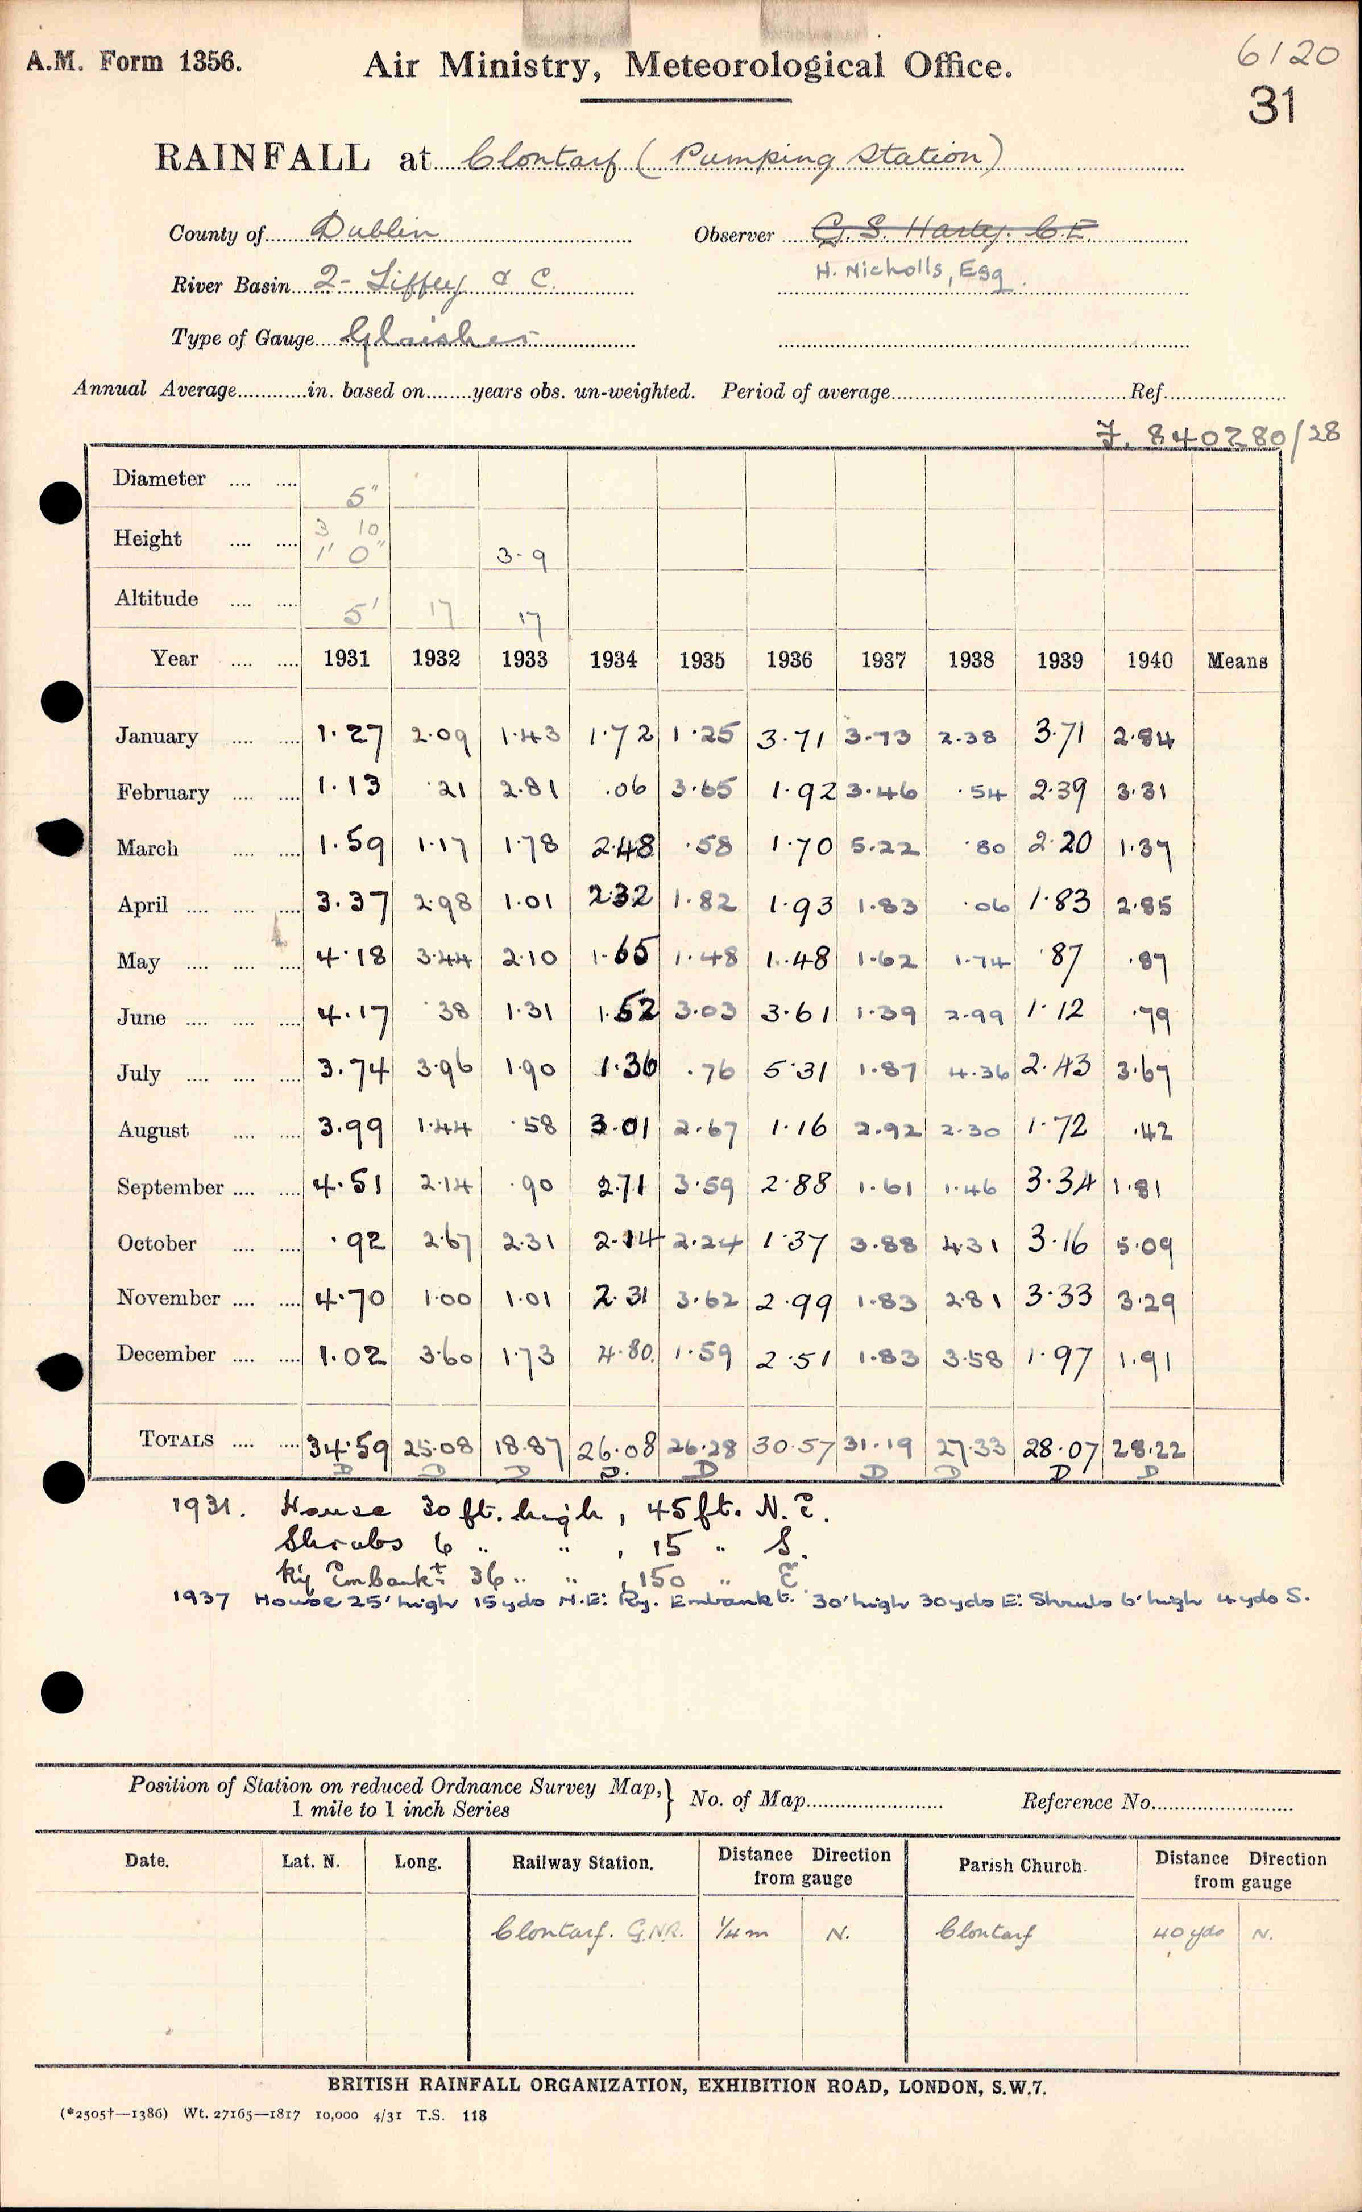 A.M. Form 1356.
Air Ministry, Meteorological Office.
6120
31
RAINFALL at Clontarf (Pumping Station)
County of Dublin Observer G. S. Harty. C.E.
River Basin 2- Liffey & C. H. Nicholls, Esq.
Type of Gauge Glaisher
Annual Average............in. based on........years obs. un-weighted. Period of average........................................Ref.....................
F. 840280/28
Diameter .... .... 5"
Height .... .... 3 10 1' 0" 3-9
Altitude .... .... 5' 17 17
Year .... .... 1931 1932 1933 1934 1935 1936 1937 1938 1939 1940 Means
January .... .... 1.27 2.09 1.43 1.72 1.25 3.71 3.73 2.38 3.71 2.84
February .... .... 1.13 .21 2.81 .06 3.65 1.92 3.46 .54 2.39 3.31
March .... .... 1.59 1.17 1.78 2.48 .58 1.70 5.22 .80 2.20 1.37
April .... .... .... 3.37 2.98 1.01 2.32 1.82 1.93 1.83 .06 1.83 2.85
May .... .... .... 4.18 3.44 2.10 1.65 1.48 1.48 1.62 1.74 .87 .87
June .... .... .... 4.17 .38 1.31 1.52 3.03 3.61 1.39 2.99 1.12 .79
July .... .... .... 3.74 3.96 1.90 1.36 .76 5.31 1.87 4.36 2.43 3.67
August .... .... 3.99 1.44 .58 3.01 2.67 1.16 2.92 2.30 1.72 .42
September .... .... 4.51 2.14 .90 2.71 3.59 2.88 1.61 1.46 3.34 1.81
October .... .... .92 2.67 2.31 2.14 2.24 1.37 3.88 4.31 3.16 5.09
November .... .... 4.70 1.00 1.01 2.31 3.62 2.99 1.83 2.81 3.33 3.29
December .... .... 1.02 3.60 1.73 4.80. 1.59 2.51 1.83 3.58 1.97 1.91
TOTALS .... .... 34.59 25.08 18.87 26.08 26.28 30.57 31.19 27.33 28.07 28.22
D D D D. D D D D D
1931. House 30 ft. high, 45 ft. N.E.
Shrubs 6 " " , 15 " S.
Ry Embankt 36 " " , 150 " E
1937 House 25' high 15 yds N.E: Ry. Embankt. 30' high 30 yds E: Shrubs 6' high 4 yds S.
Position of Station on reduced Ordnance Survey Map, } No. of Map......................... Reference No.........................
1 mile to 1 inch Series
Date. Lat. N. Long. Railway Station. Distance Direction from gauge Parish Church. Distance Direction from gauge
Clontarf. G.N.R. 1/4 m N. Clontarf 40 yds N.
BRITISH RAINFALL ORGANIZATION, EXHIBITION ROAD, LONDON, S.W.7.
(*2505†—1386) Wt. 27165—1817 10,000 4/31 T.S. 118